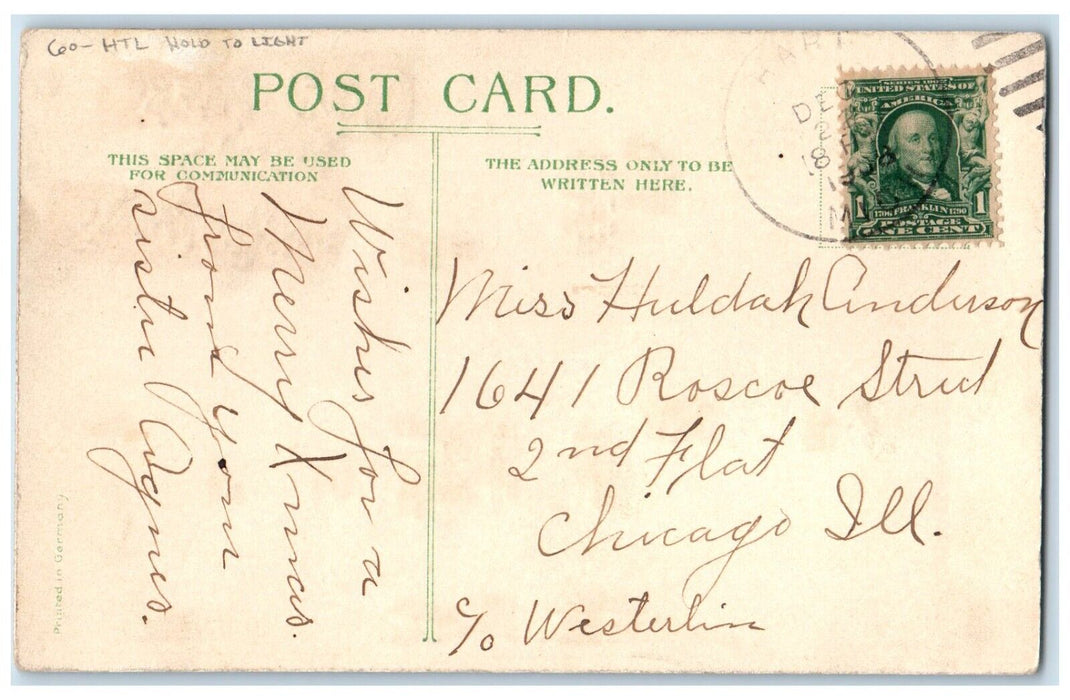 60- HTL HOLD TO LIGHT
POST CARD.
THIS SPACE MAY BE USED
FOR COMMUNICATION
THE ADDRESS ONLY TO BE
WRITTEN HERE.
HART
DEC
SERIES 1902
UNITED STATES OF
AMERICA
1 1
1706 FRANKLIN 1790
POSTAGE
ONE CENT
Wishes for a
Merry Xmas.
from your
sister Agnes.
Miss Huldah Anderson
1641 Roscoe Street
2nd Flat
Chicago Ill.
c/o Westerlin
Printed in Germany